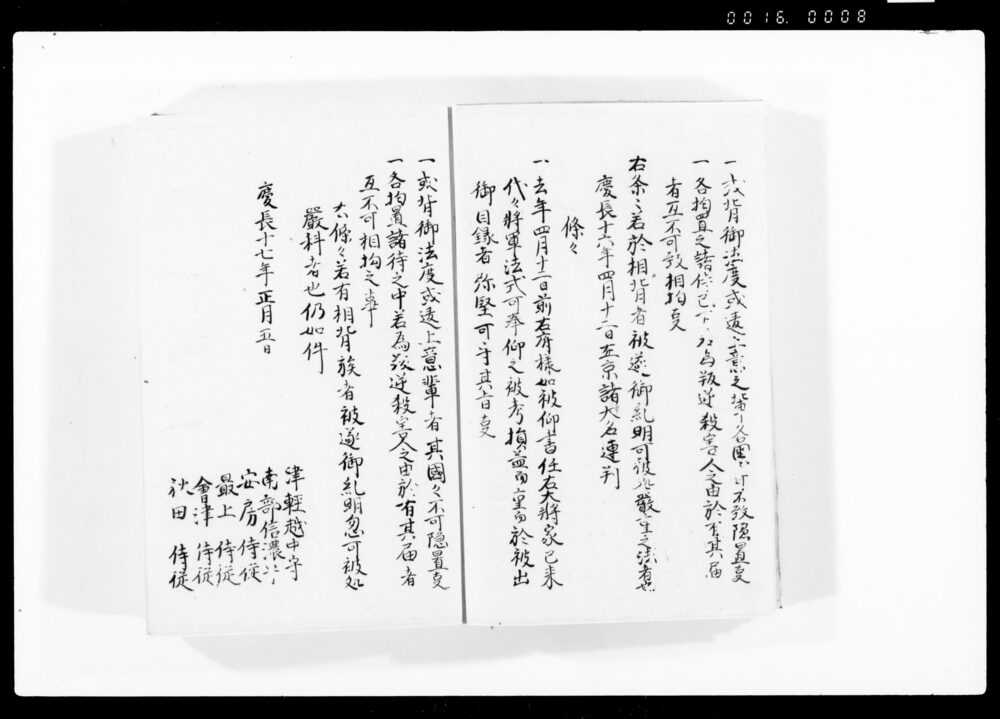 0016. 0008
一或背御法度或違上意之輩各国々可不致隠置事
一各拘置之諸侍已下若為叛逆殺害人之由於有其届
者互不可致相拘事
右条々若於相背者被遂御糺明可被処厳重之法者也
慶長十六年四月十二日在京諸大名連判
條々
一去年四月十二日前右府様如被仰書任右大将家已来
代々将軍法式可奉仰之被考損益而重而於被出
御目録者弥堅可守其旨事
一或背御法度或違上意輩者其國々不可隠置事
一各拘置諸侍之中若為叛逆殺害人之由於有其届者
互不可相拘之事
右條々若有相背族者被遂御糺明忽可被処
嚴科者也仍如件
慶長十七年正月五日
津輕越中守
南部信濃守
安房侍従
最上侍従
會津侍従
秋田侍従